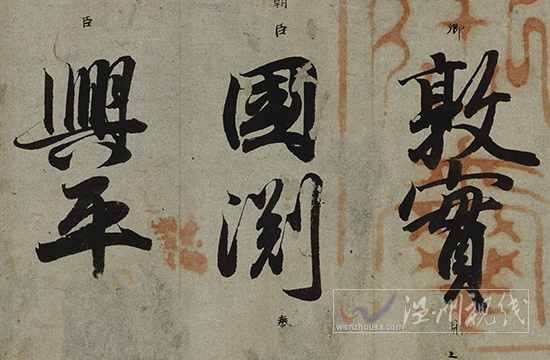 卿
敦實
朝臣
國淵
奉
臣
興平
温州视线
wenzhousx.com